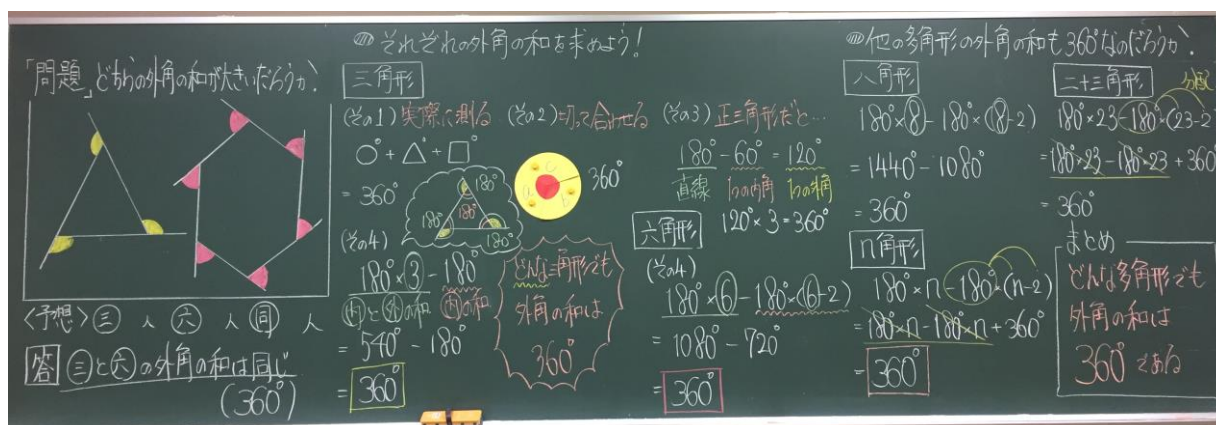 「問題」どちらの外角の和が大きいだろうか?
<予想> 三 人 六 人 同 人
答 三と六の外角の和は同じ
(360°)
それぞれの外角の和を求めよう!
三角形
(その1) 実際に測る
○° + △° + □°
= 360°
(その2) 切って合わせる
180°
180°
180°
180°
a
c
b
360°
(その3) 正三角形だと…
180° - 60° = 120°
直線 1つの内角 1つの外角
120° × 3 = 360°
(その4)
180° × 3 - 180°
内と外の和 内の和
= 540° - 180°
= 360°
どんな三角形でも
外角の和は
360°
六角形
(その4)
180° × 6 - 180° × (6-2)
= 1080° - 720°
= 360°
他の多角形の外角の和も360°なのだろうか?
八角形
180° × 8 - 180° × (18-2)
= 1440° - 1080°
= 360°
n角形
180° × n - 180° × (n-2)
= 180° × n - 180° × n + 360°
= 360°
二十三角形
分配
180° × 23 - 180° × (23-2)
= 180° × 23 - 180° × 23 + 360°
= 360°
まとめ
どんな多角形でも
外角の和は
360°である